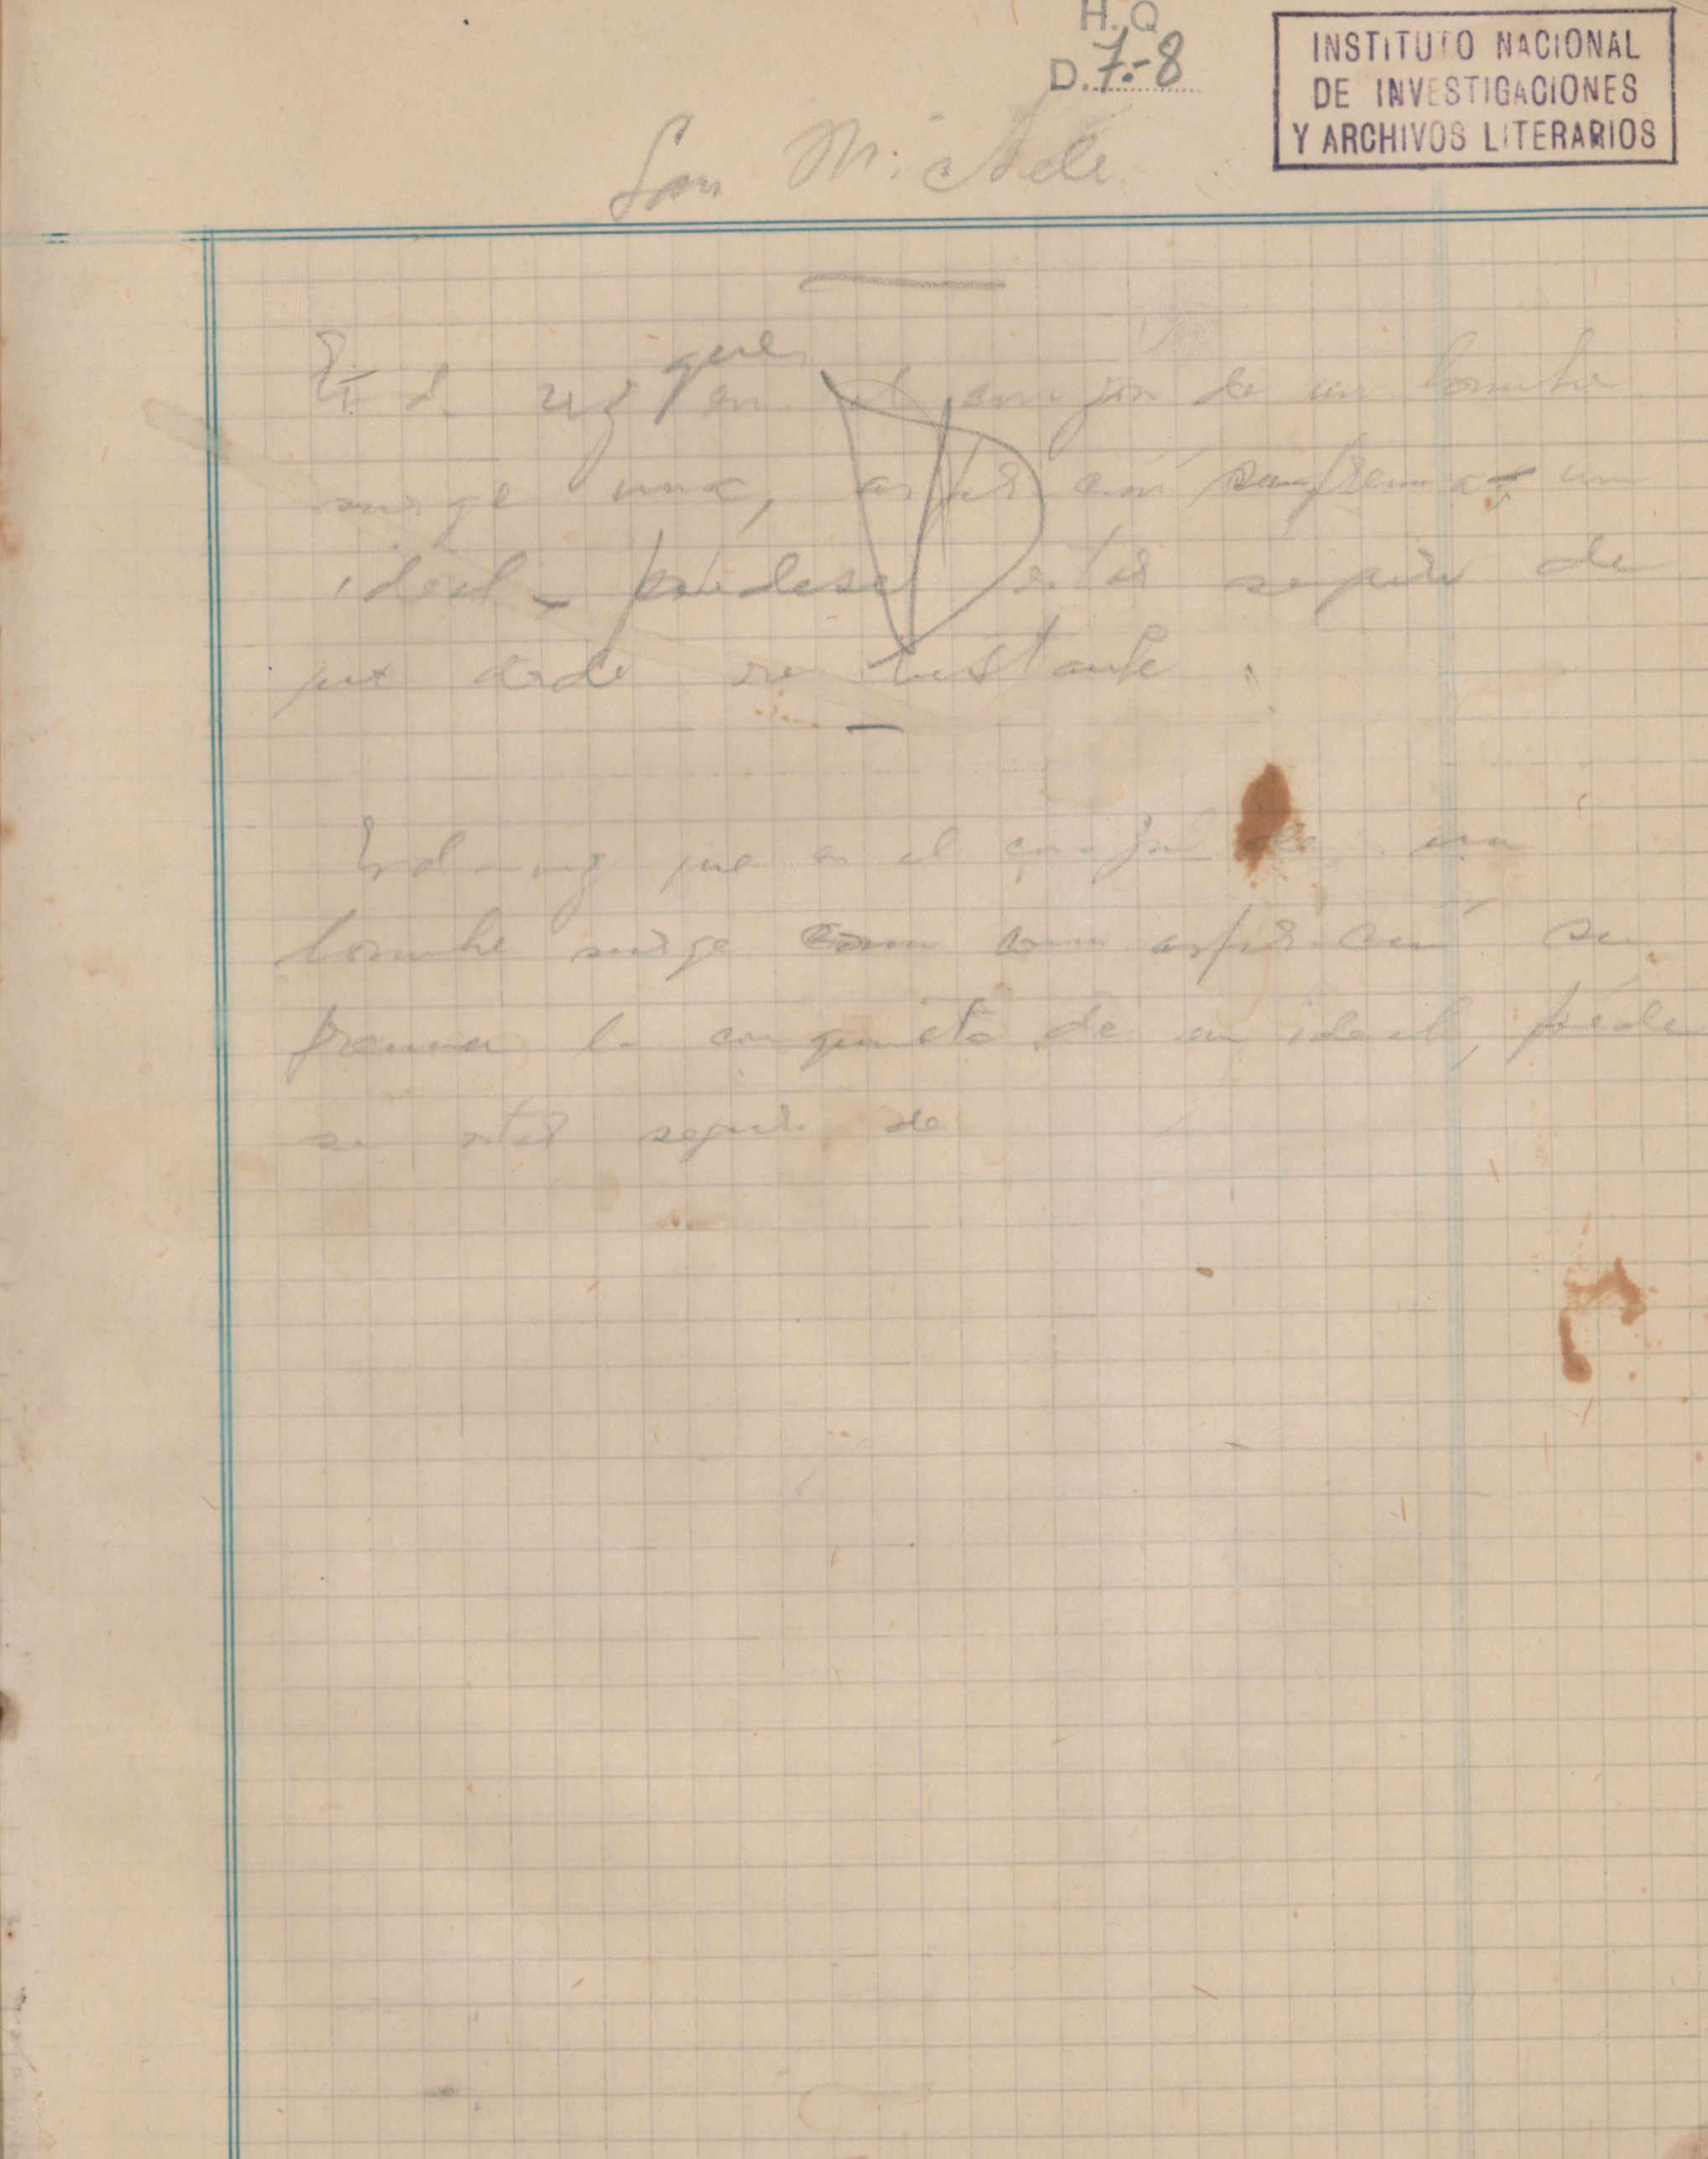 H. Q
D. 7.-8
INSTITUTO NACIONAL
DE INVESTIGACIONES
Y ARCHIVOS LITERARIOS
San Michele
que
vez en el corazón de un hombre
surge una, aspiración suprema un
ideal - puédese estar seguro de
que desde ese instante
que en el corazón de un
hombre surge como aspiración su
prema la conquista de un ideal, puéde
se estar seguro de